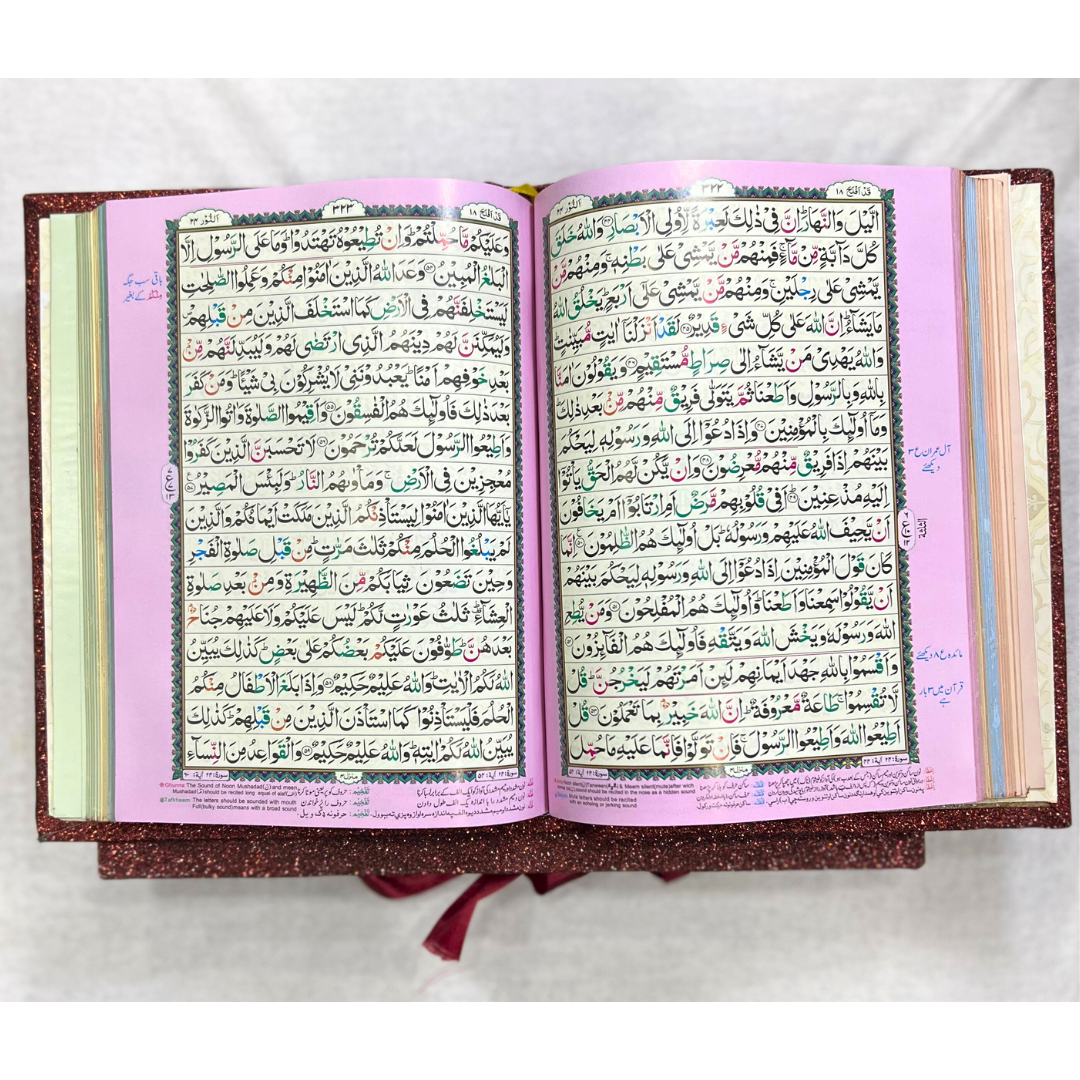 قَدْ اَفْلَحَ ١٨
٣٢٢
اَلنُّوْر ٢٤
الَّيْلَ وَالنَّهَارَ ؕ اِنَّ فِيْ ذٰلِكَ لَعِبْرَةً لِّاُولِي الْاَبْصَارِ ﴿۴۴﴾ وَاللّٰهُ خَلَقَ
كُلَّ دَآبَّةٍ مِّنْ مَّآءٍ ۚ فَمِنْهُمْ مَّنْ يَّمْشِيْ عَلٰى بَطْنِهٖ ۚ وَمِنْهُمْ مَّنْ
يَّمْشِيْ عَلٰى رِجْلَيْنِ ۚ وَمِنْهُمْ مَّنْ يَّمْشِيْ عَلٰٓى اَرْبَعٍ ؕ يَخْلُقُ اللّٰهُ
مَا يَشَآءُ ؕ اِنَّ اللّٰهَ عَلٰى كُلِّ شَيْءٍ قَدِيْرٌ ﴿۴۵﴾ لَقَدْ اَنْزَلْنَآ اٰيٰتٍ مُّبَيِّنٰتٍ ؕ
وَاللّٰهُ يَهْدِيْ مَنْ يَّشَآءُ اِلٰى صِرَاطٍ مُّسْتَقِيْمٍ ﴿۴۶﴾ وَيَقُوْلُوْنَ اٰمَنَّا
بِاللّٰهِ وَبِالرَّسُوْلِ وَاَطَعْنَا ثُمَّ يَتَوَلّٰى فَرِيْقٌ مِّنْهُمْ مِّنْۢ بَعْدِ ذٰلِكَ ؕ
وَمَآ اُولٰٓئِكَ بِالْمُؤْمِنِيْنَ ﴿۴۷﴾ وَاِذَا دُعُوْٓا اِلَى اللّٰهِ وَرَسُوْلِهٖ لِيَحْكُمَ
بَيْنَهُمْ اِذَا فَرِيْقٌ مِّنْهُمْ مُّعْرِضُوْنَ ﴿۴۸﴾ وَاِنْ يَّكُنْ لَّهُمُ الْحَقُّ يَاْتُوْٓا
اِلَيْهِ مُذْعِنِيْنَ ﴿۴۹﴾ اَفِيْ قُلُوْبِهِمْ مَّرَضٌ اَمِ ارْتَابُوْٓا اَمْ يَخَافُوْنَ
اَنْ يَّحِيْفَ اللّٰهُ عَلَيْهِمْ وَرَسُوْلُهٗ ؕ بَلْ اُولٰٓئِكَ هُمُ الظّٰلِمُوْنَ ﴿۵۰﴾ اِنَّمَا
كَانَ قَوْلَ الْمُؤْمِنِيْنَ اِذَا دُعُوْٓا اِلَى اللّٰهِ وَرَسُوْلِهٖ لِيَحْكُمَ بَيْنَهُمْ
اَنْ يَّقُوْلُوْا سَمِعْنَا وَاَطَعْنَا ؕ وَاُولٰٓئِكَ هُمُ الْمُفْلِحُوْنَ ﴿۵۱﴾ وَمَنْ يُّطِعِ
اللّٰهَ وَرَسُوْلَهٗ وَيَخْشَ اللّٰهَ وَيَتَّقْهِ فَاُولٰٓئِكَ هُمُ الْفَآئِزُوْنَ ﴿۵۲﴾
وَاَقْسَمُوْا بِاللّٰهِ جَهْدَ اَيْمَانِهِمْ لَئِنْ اَمَرْتَهُمْ لَيَخْرُجُنَّ ؕ قُلْ
لَّا تُقْسِمُوْا ۚ طَاعَةٌ مَّعْرُوْفَةٌ ؕ اِنَّ اللّٰهَ خَبِيْرٌۢ بِمَا تَعْمَلُوْنَ ﴿۵۳﴾ قُلْ
اَطِيْعُوا اللّٰهَ وَاَطِيْعُوا الرَّسُوْلَ ۚ فَاِنْ تَوَلَّوْا فَاِنَّمَا عَلَيْهِ مَا حُمِّلَ
آل عمران ع ٣
دیکھئے
مائدہ ع ٨ دیکھئے
قرآن میں ٣ بار
ہے
منزل ٤
قَدْ اَفْلَحَ ١٨
٣٢٣
اَلنُّوْر ٢٤
وَعَلَيْكُمْ مَّا حُمِّلْتُمْ ؕ وَاِنْ تُطِيْعُوْهُ تَهْتَدُوْا ؕ وَمَا عَلَى الرَّسُوْلِ اِلَّا
الْبَلٰغُ الْمُبِيْنُ ﴿۵۴﴾ وَعَدَ اللّٰهُ الَّذِيْنَ اٰمَنُوْا مِنْكُمْ وَعَمِلُوا الصّٰلِحٰتِ
لَيَسْتَخْلِفَنَّهُمْ فِي الْاَرْضِ كَمَا اسْتَخْلَفَ الَّذِيْنَ مِنْ قَبْلِهِمْ
وَلَيُمَكِّنَنَّ لَهُمْ دِيْنَهُمُ الَّذِي ارْتَضٰى لَهُمْ وَلَيُبَدِّلَنَّهُمْ مِّنْۢ
بَعْدِ خَوْفِهِمْ اَمْنًا ؕ يَعْبُدُوْنَنِيْ لَا يُشْرِكُوْنَ بِيْ شَيْـًٔا ؕ وَمَنْ كَفَرَ
بَعْدَ ذٰلِكَ فَاُولٰٓئِكَ هُمُ الْفٰسِقُوْنَ ﴿۵۵﴾ وَاَقِيْمُوا الصَّلٰوةَ وَاٰتُوا الزَّكٰوةَ
وَاَطِيْعُوا الرَّسُوْلَ لَعَلَّكُمْ تُرْحَمُوْنَ ﴿۵۶﴾ لَا تَحْسَبَنَّ الَّذِيْنَ كَفَرُوْا
مُعْجِزِيْنَ فِي الْاَرْضِ ۚ وَمَاْوٰىهُمُ النَّارُ ؕ وَلَبِئْسَ الْمَصِيْرُ ﴿۵۷﴾
يٰٓاَيُّهَا الَّذِيْنَ اٰمَنُوْا لِيَسْتَاْذِنْكُمُ الَّذِيْنَ مَلَكَتْ اَيْمَانُكُمْ وَالَّذِيْنَ
لَمْ يَبْلُغُوا الْحُلُمَ مِنْكُمْ ثَلٰثَ مَرّٰتٍ ؕ مِنْ قَبْلِ صَلٰوةِ الْفَجْرِ
وَحِيْنَ تَضَعُوْنَ ثِيَابَكُمْ مِّنَ الظَّهِيْرَةِ وَمِنْۢ بَعْدِ صَلٰوةِ
الْعِشَآءِ ؕ ثَلٰثُ عَوْرٰتٍ لَّكُمْ ؕ لَيْسَ عَلَيْكُمْ وَلَا عَلَيْهِمْ جُنَاحٌۢ
بَعْدَهُنَّ ؕ طَوّٰفُوْنَ عَلَيْكُمْ بَعْضُكُمْ عَلٰى بَعْضٍ ؕ كَذٰلِكَ يُبَيِّنُ
اللّٰهُ لَكُمُ الْاٰيٰتِ ؕ وَاللّٰهُ عَلِيْمٌ حَكِيْمٌ ﴿۵۸﴾ وَاِذَا بَلَغَ الْاَطْفَالُ مِنْكُمُ
الْحُلُمَ فَلْيَسْتَاْذِنُوْا كَمَا اسْتَاْذَنَ الَّذِيْنَ مِنْ قَبْلِهِمْ ؕ كَذٰلِكَ
يُبَيِّنُ اللّٰهُ لَكُمْ اٰيٰتِهٖ ؕ وَاللّٰهُ عَلِيْمٌ حَكِيْمٌ ﴿۵۹﴾ وَالْقَوَاعِدُ مِنَ النِّسَآءِ
باقی سب جگہ
کے بغیر
منزل ٤
Ghunna: The Sound of Noon Mushadad(نّ)and meem
Mushadad(مّ)should be recited long equal of alaf
Tafkheem: The letters should be sounded with mouth
Full(bulky sound)means with a broad sound